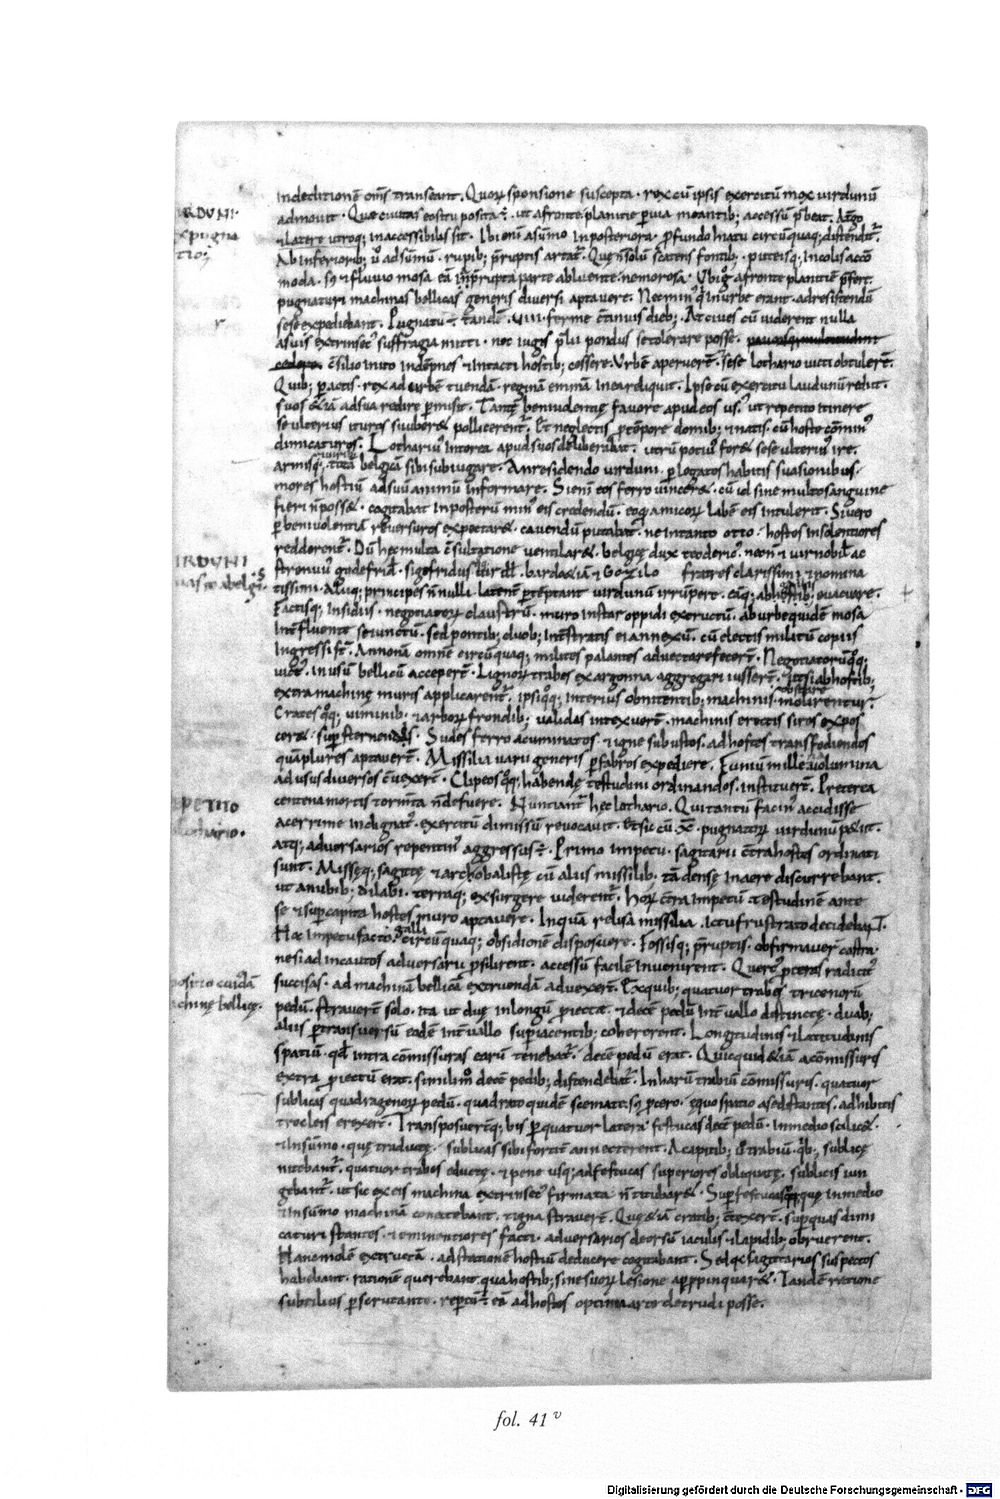 IRDUNI
xpugna
tio
In deditionē om̄s transeant. Quorū sponsione suscepta · rex cū ipsis exercitū mox virdunū
admovit · Quę civitas eo situ posita ē · ut a fronte planitie pervia meantib; accessū p̄beat. A t̄go
et latere utroq; inaccessibilis sit. Ibi eni a sūmo in posteriora · p̄fundo hiatu circūquaq; distendit̄.
Ab inferiorib; v̄o ad sūmū · rupib; p̄ruptis artat̄. Quę n̄ solū scatens fontib; · puteisq; incolis accō
moda · s; et fluvio mosa eā a p̄rupta parte abluente nemorosa · Ubi ḡ a fronte planitiē p̄fert ·
pugnaturi machinas bellicas generis diversi aptavere. Nec min; q̄ in urbe erant · ad resistendū
sese expediebant. Pugnatū ē tandē · VIII · ferme c̄tinuis dieb; · At cives cū viderent nulla
a suis extrinsec; suffragia mitti · nec iugis p̄lii pondus se tolerare posse ·
c̄silio inito indēpnes et intacti hostib; cessere · Urbē aperuer̄t · sese lothario victi obtuler̄t.
Quib; p̄actis · rex ad urbē tuendā · reginā emmā in ea reliquit. Ipse cū exercitu laudunū redit ·
suos & iā ad sua redire p̄misit · Tantę benivolentię favore apud eos us; ut repetito itinere
se ulterius ituros si iuber& pollicerent̄. Et neglectis p̄ tēpore domib; et natis · cū hoste cōmin;
dimicaturos. Lotharius interea apud suos deliberabat · utrū potius for& sese ulterius ire ·
armisq; totā belgicā sibi subiugare. An residendo virduni · p̄ legatos habitis suasionibus ·
mores hostiū ad suū animū informare. Si eni eos ferro vincer& · cū id sine multo sanguine
fieri n̄ poss& · cogitabat in posterū min; eis credendū · eo q̄ amicorū labē eis intulerit. Si vero
p̄ benivolentiā reversuros expectar& · cavendū putabat · ne in tanto otio · hostes insolentiores
redderent̄. Dū hec multa c̄sultatione ventilar& · belgicę dux teoderic; · necn̄ et vir nobilis ac
IRDUNI
strenuus godefrid; · sigefridus · bardo & iā et Gozilo fratres clarissimi et nomina
tissimi · Aliiq; principes n̄nulli latent̄ p̄temptant virdunū irrūpere · eāq; ab hostib; evacuare ·
Factisq; insidiis · negotiatorū claustrū · muro instar oppidi extructū · ab urbe quidē mosa
int̄fluente seiunctū · sed pontib; duob; int̄stratis ei annexū · cū electis militū copiis
ingressi st̄. Annonā omnē circūquaq; milites palantes advectare fecer̄t · Negotiatorū q̄q;
victū in usū bellicū acceper̄t · Lignorū trabes ex argonna aggregari iusser̄t · ut si ab hostib;
extra machinę muris applicarent̄ · ipsi q̄q; interius obnitentib; machinis · obstare molirentur ·
Crates q̄q; viminib; et arborū frondib; validas intexuer̄t · machinis erectis si res expos
cer& · sup̄sternendas · Sudes ferro acuminatos · et igne subustos · ad hostes transfodiendos
quāplures aptaver̄t · Missilia varii generis p̄ fabros expediere. Funiū millena volumina
ad usus diversos c̄vexer̄t · Clipeos q̄q; habendę testudini ordinandos · instituer̄t. Preterea
centena mortis torm̄ta n̄ defuere. Nuntiant̄ hec lothario. Qui tantū facin; accidisse
REPETITIO
lothario ·
acerrime indignat; · exercitū dimissū revocavit · Et sic cū · X · pugnatorū virdunū petiit ·
atq; adversarios repentin; aggressus ē · Primo impetu · sagitarii c̄tra hostes ordinati
sunt · Missęq; sagittę et archobalistę cū aliis missilib; tā densę in aere discurrebant ·
ut a nubib; dilabi · terraq; exsurgere viderent̄. Horū c̄tra impetū testudinē ante
se et sup̄ capita hostes muro aptavere. In quā relisa missilia · ictu frustrato decidebant.
Hoc impetu facto · galli circūquaq; obsidionē disposuere · Fossisq; p̄ruptis · obfirmaver̄ castra ·
ne si ad incautos adversarii p̄silirent · accessū facilē invenirent. Querc; p̄ceras radicit;
positio cuidā
achinę bellicę ·
succisas · ad machinā bellicā extruendā advexer̄t. Ex quib; quatuor trabes tricenorū
pedū · straver̄t solo · Ita ut duę in longū p̄iectę · et decē pedū int̄vallo distinctę · duab;
aliis p̄ transversū eodē int̄vallo sup̄iacentib; cohererent. Longitudinis et latitudinis
spatiū · qd̄ intra cōmissuras earū tenebat̄ · decē pedū erat. Quicquid & iā a cōmissuris
extra p̄iectū erat · simili m̄ decē pedib; distendebat̄. In harū trabiū cōmissuris · quatuor
sublicas quadragenorū pedū · quadrato quidē scemate · s; p̄cero · ęquo spatio a se distantes · adhibitis
trocleis erexer̄t · Transposuer̄tq; bis p̄ quatuor latera festucas decē pedū · in medio scilic& ·
et in sūmo · quę traductę · sublicas sibi fortit̄ annecterent · A capitib; v̄o trabiū · q̄b; sublicę
nitebant̄ · quatuor trabes eductę · et pene usq; ad festucas superiores obliquatę · sublicis iun
gebant̄ · ut sic ex eis machina extrinsec; firmata n̄ titubar& · Sup̄ festucas q̄q; quę in medio
et in sūmo machinā conectebant · tigna straver̄t. Quę & iā cratib; c̄texer̄t · sup̄ quas dimi
caturi stantes · et eminentiores facti · adversarios deorsū iaculis et lapidib; obruerent ·
Hanc molē extructā · ad stationē hostiū deducere cogitabant · Sed q̄a sagittarios suspectos
habebant · rationē querebant qua hostib; sine suorū lesione app̄pinquar& · Tandē ratione
subtilius p̄scrutante · repertū ē eā ad hostes optima arte detrudi posse.
fol. 41 v
Digitalisierung gefördert durch die Deutsche Forschungsgemeinschaft - DFG